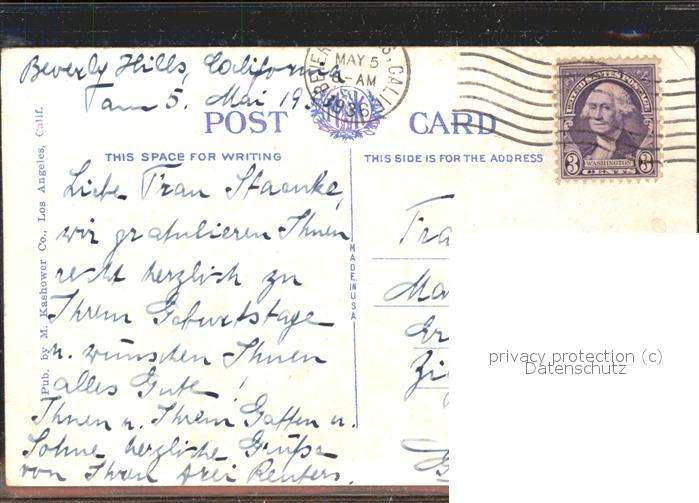 Beverly Hills, California
am 5. Mai 193
BEVER S, CALIF
MAY 5
8-AM
1936
POST CARD
UNITED STATES POSTAGE
3 WASHINGTON 3
CENTS
THIS SPACE FOR WRITING
THIS SIDE IS FOR THE ADDRESS
Liebe Frau Staenke,
wir gratulieren Ihnen
recht herzlich zu
Ihrem Geburtstage
u. wünschen Ihnen
alles Gute!
Ihnen u. Ihrem Gatten u.
Sohne herzliche Grüße
von Ihren drei Reuters.
Pub. by M. Kashower Co., Los Angeles, Calif.
MADE IN USA
Fra
Ma
Zi
privacy protection (c)
Datenschutz